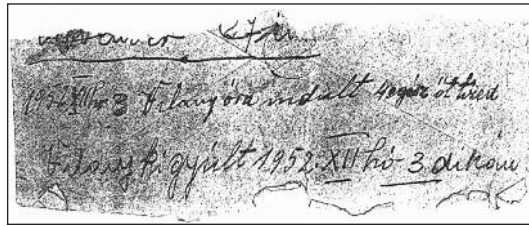 1952 XII hó 3 Vilanyóra indult 4 egész öt tized
Vilany kigyúlt 1952. XII hó 3 dikán